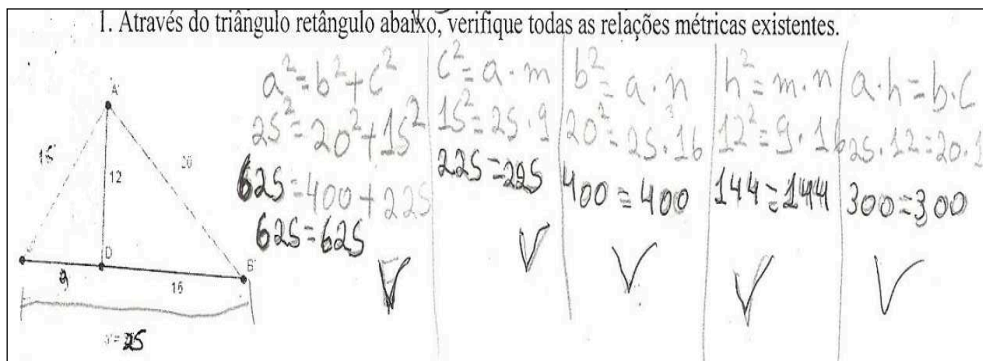 1. Através do triângulo retângulo abaixo, verifique todas as relações métricas existentes.
A
15
12
20
D
B
9
16
25
a² = b² + c²
25² = 20² + 15²
625 = 400 + 225
625 = 625
V
c² = a · m
15² = 25 · 9
225 = 225
V
b² = a · n
20² = 25 · 16
400 = 400
V
h² = m · n
12² = 9 · 16
144 = 144
V
a · h = b · c
25 · 12 = 20 · 1
300 = 300
V